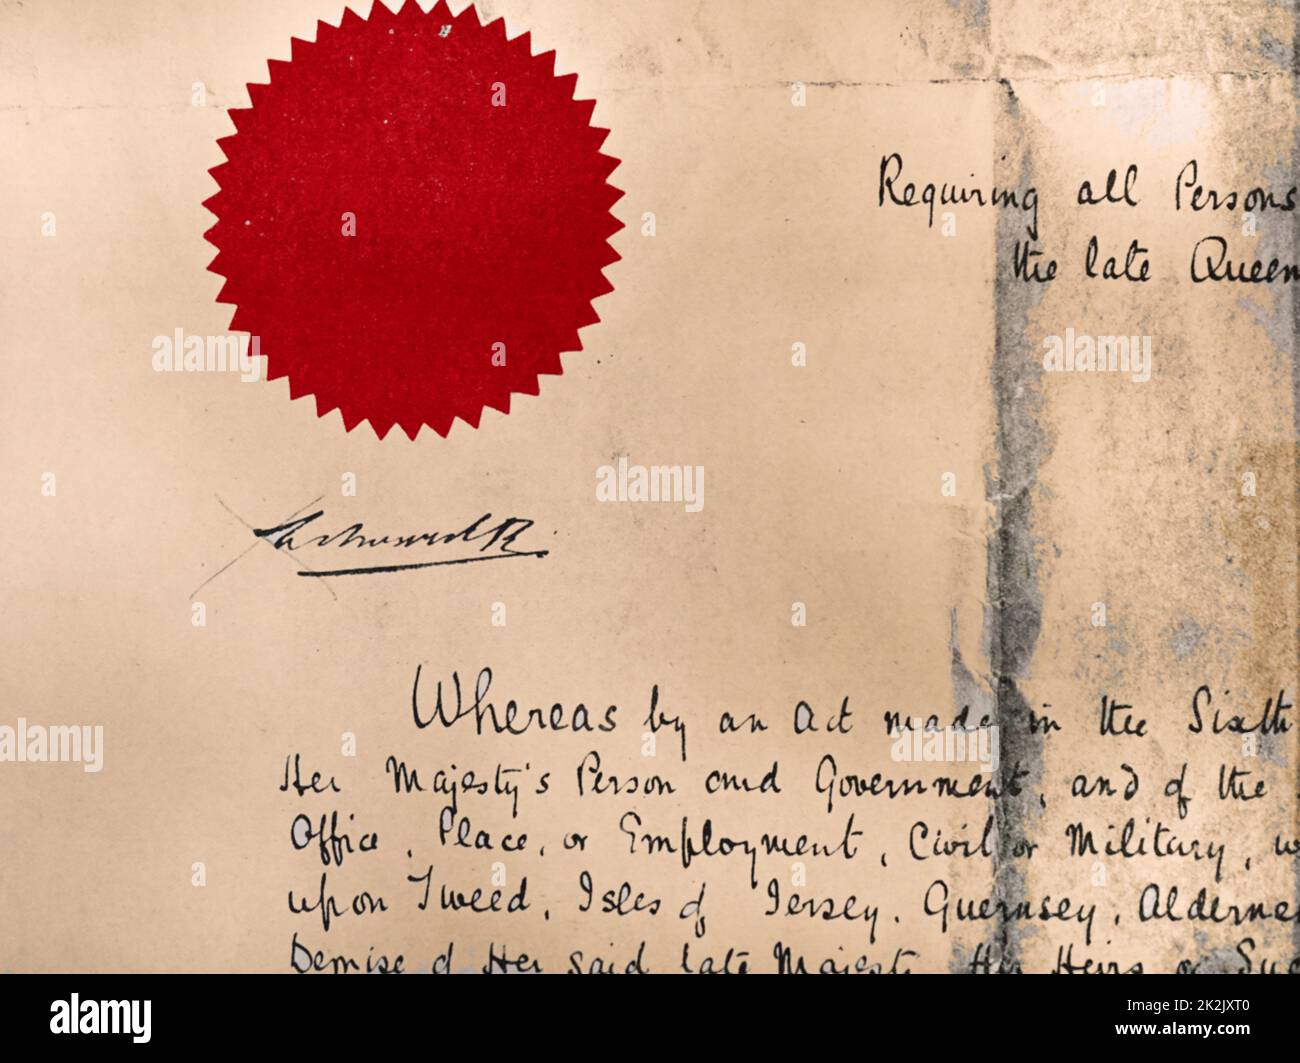 Requiring all Persons
the late Queen
Edward R
Whereas by an Act made in the Sixth
Her Majesty's Person and Government, and of the
Office, Place, or Employment, Civil or Military,
upon Tweed, Isles of Jersey, Guernsey,
Demise of Her said late Majesty Her Heirs or
alamy
Image ID: 2K2JXT0
www.alamy.com